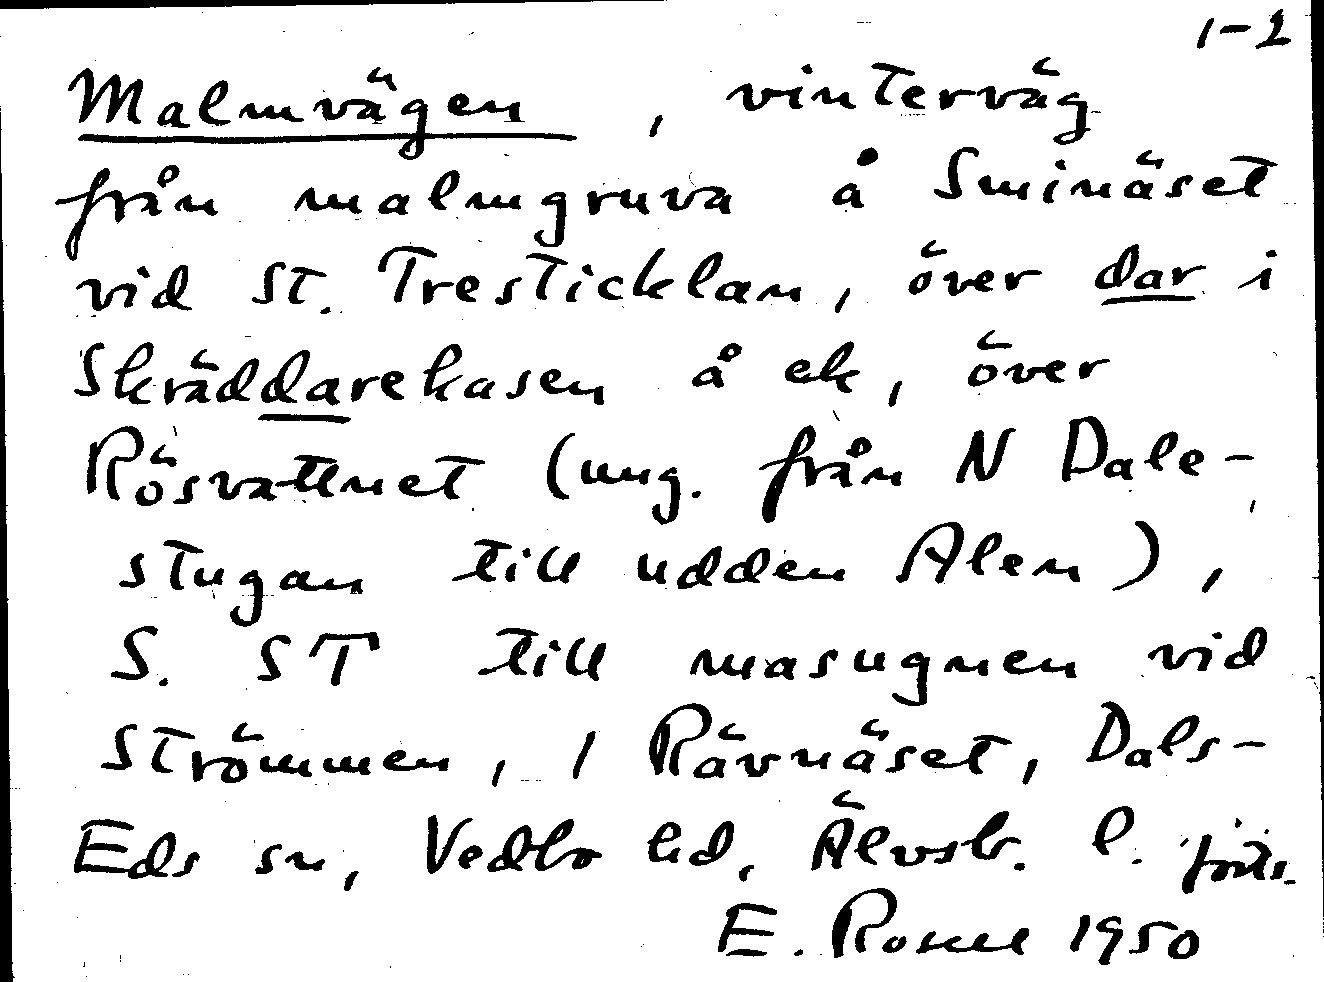 1-2
Malmvägen, vinterväg
från malmgruva å Sminäset
vid St. Tresticklan, över dar i
Skräddarekasen å ek, över
Rösvattnet (ung. från N Dale-
stugan till udden Alen),
S. ST till masugnen vid
Strömmen, 1 Rävnäset, Dals-
Eds sn, Vedbo hd, Älvsb. l. forts.
E. Rosell 1950